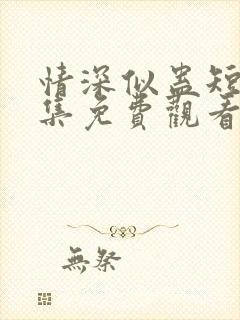 情深似蛊短
集免費觀看
無祭